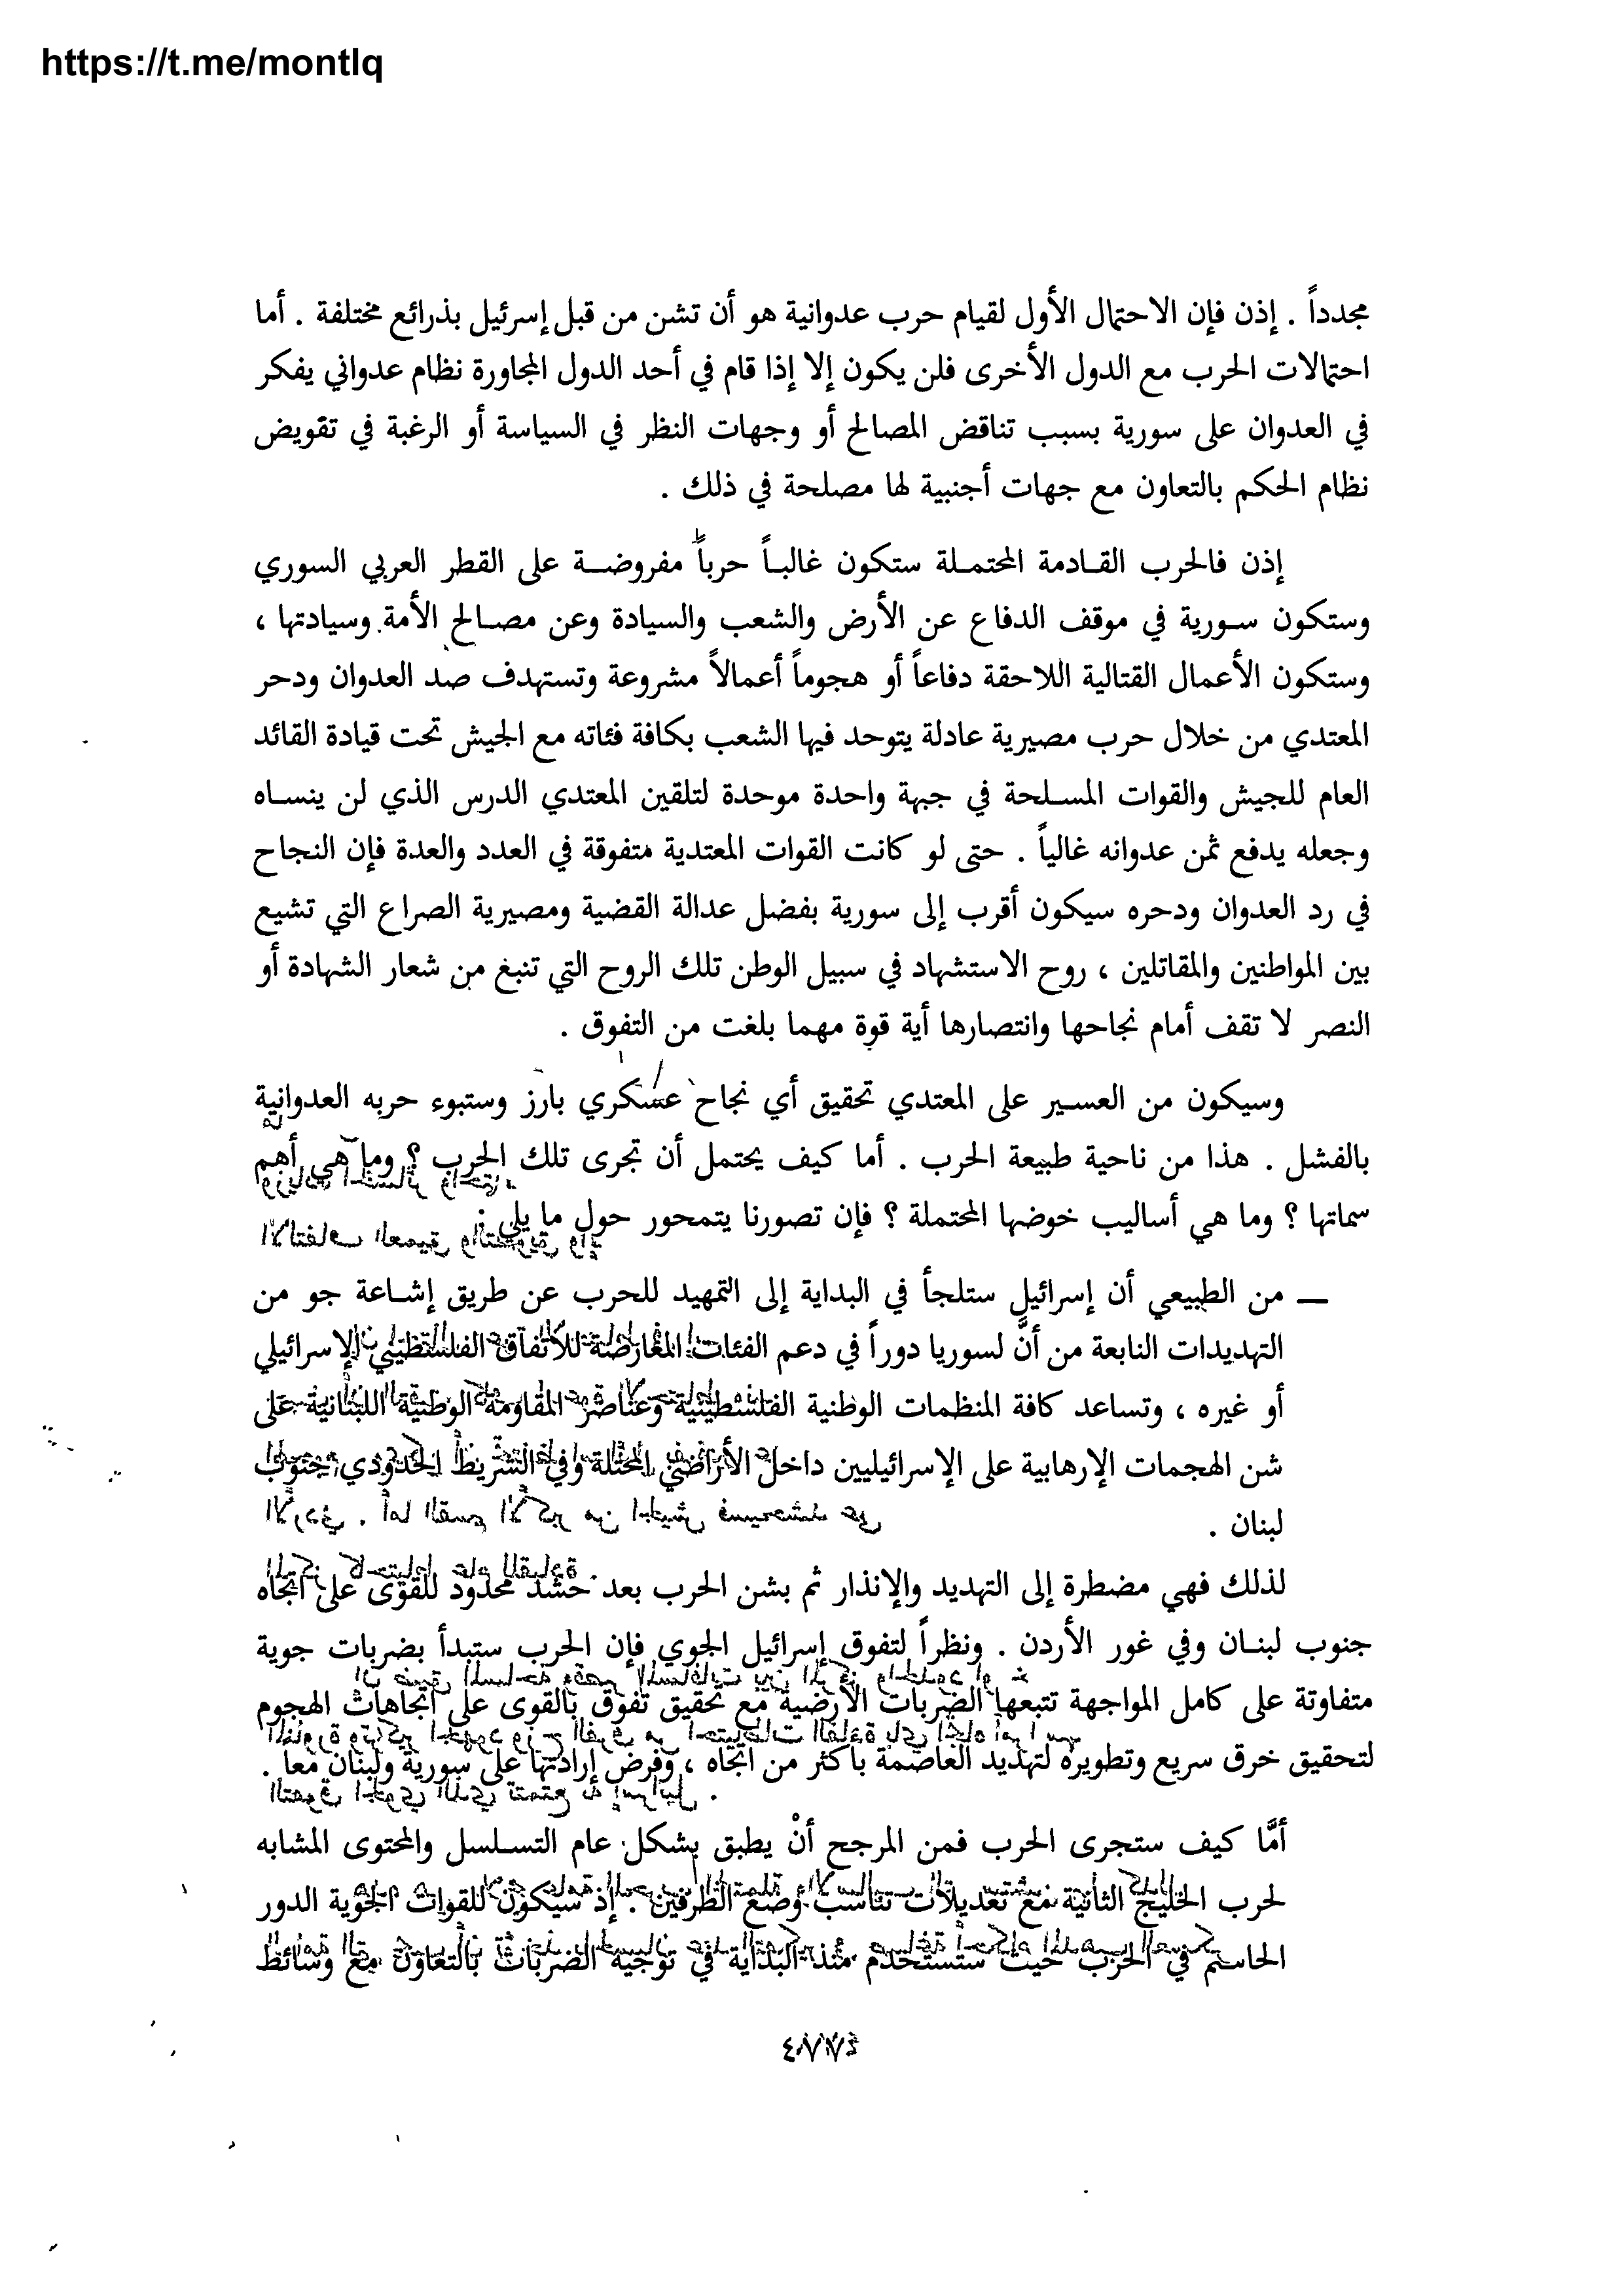 https://t.me/montlq
مجدداً . إذن فإن الاحتمال الأول لقيام حرب عدوانية هو أن تشن من قبل إسرئيل بذرائع مختلفة . أما
احتمالات الحرب مع الدول الأخرى فلن يكون إلا إذا قام في أحد الدول المجاورة نظام عدواني يفكر
في العدوان على سورية بسبب تناقض المصالح أو وجهات النظر في السياسة أو الرغبة في تقويض
نظام الحكم بالتعاون مع جهات أجنبية لها مصلحة في ذلك .
إذن فالحرب القادمة المحتملة ستكون غالباً حرباً مفروضة على القطر العربي السوري
وستكون سورية في موقف الدفاع عن الأرض والشعب والسيادة وعن مصالح الأمة وسيادتها ،
وستكون الأعمال القتالية اللاحقة دفاعاً أو هجوماً أعمالاً مشروعة وتستهدف صد العدوان ودحر
المعتدي من خلال حرب مصيرية عادلة يتوحد فيها الشعب بكافة فئاته مع الجيش تحت قيادة القائد
العام للجيش والقوات المسلحة في جبهة واحدة موحدة لتلقين المعتدي الدرس الذي لن ينساه
وجعله يدفع ثمن عدوانه غالياً . حتى لو كانت القوات المعتدية متفوقة في العدد والعدة فإن النجاح
في رد العدوان ودحره سيكون أقرب إلى سورية بفضل عدالة القضية ومصيرية الصراع التي تشيع
بين المواطنين والمقاتلين ، روح الاستشهاد في سبيل الوطن تلك الروح التي تنبغ من شعار الشهادة أو
النصر لا تقف أمام نجاحها وانتصارها أية قوة مهما بلغت من التفوق .
وسيكون من العسير على المعتدي تحقيق أي نجاح عسكري بارز وستبوء حربه العدوانية
بالفشل . هذا من ناحية طبيعة الحرب . أما كيف يحتمل أن تجرى تلك الحرب ؟ وما هي أهم
سماتها ؟ وما هي أساليب خوضها المحتملة ؟ فإن تصورنا يتمحور حول ما يلي :
— من الطبيعي أن إسرائيل ستلجأ في البداية إلى التمهيد للحرب عن طريق إشاعة جو من
التهديدات النابعة من أنَّ لسوريا دوراً في دعم الفئات المعارضة للاتفاق الفلسطيني الإسرائيلي
أو غيره ، وتساعد كافة المنظمات الوطنية الفلسطينية وعناصر المقاومة الوطنية اللبنانية على
شن الهجمات الإرهابية على الإسرائيليين داخل الأراضي المحتلة وفي الشريط الحدودي جنوب
لبنان .
لذلك فهي مضطرة إلى التهديد والإنذار ثم بشن الحرب بعد حشد محدود للقوى على اتجاه
جنوب لبنان وفي غور الأردن . ونظراً لتفوق إسرائيل الجوي فإن الحرب ستبدأ بضربات جوية
متفاوتة على كامل المواجهة تتبعها الضربات الأرضية مع تحقيق تفوق بالقوى على اتجاهات الهجوم
لتحقيق خرق سريع وتطويره لتهديد العاصمة بأكثر من اتجاه ، وفرض إرادتها على سورية ولبنان معاً .
أمَّا كيف ستجرى الحرب فمن المرجح أنْ يطبق بشكل عام التسلسل والمحتوى المشابه
لحرب الخليج الثانية مع تعديلات تناسب وضع الطرفين . إذ سيكون للقوات الجوية الدور
الحاسم في الحرب حيث ستستخدم منذ البداية في توجيه الضربات بالتعاون مع وسائط